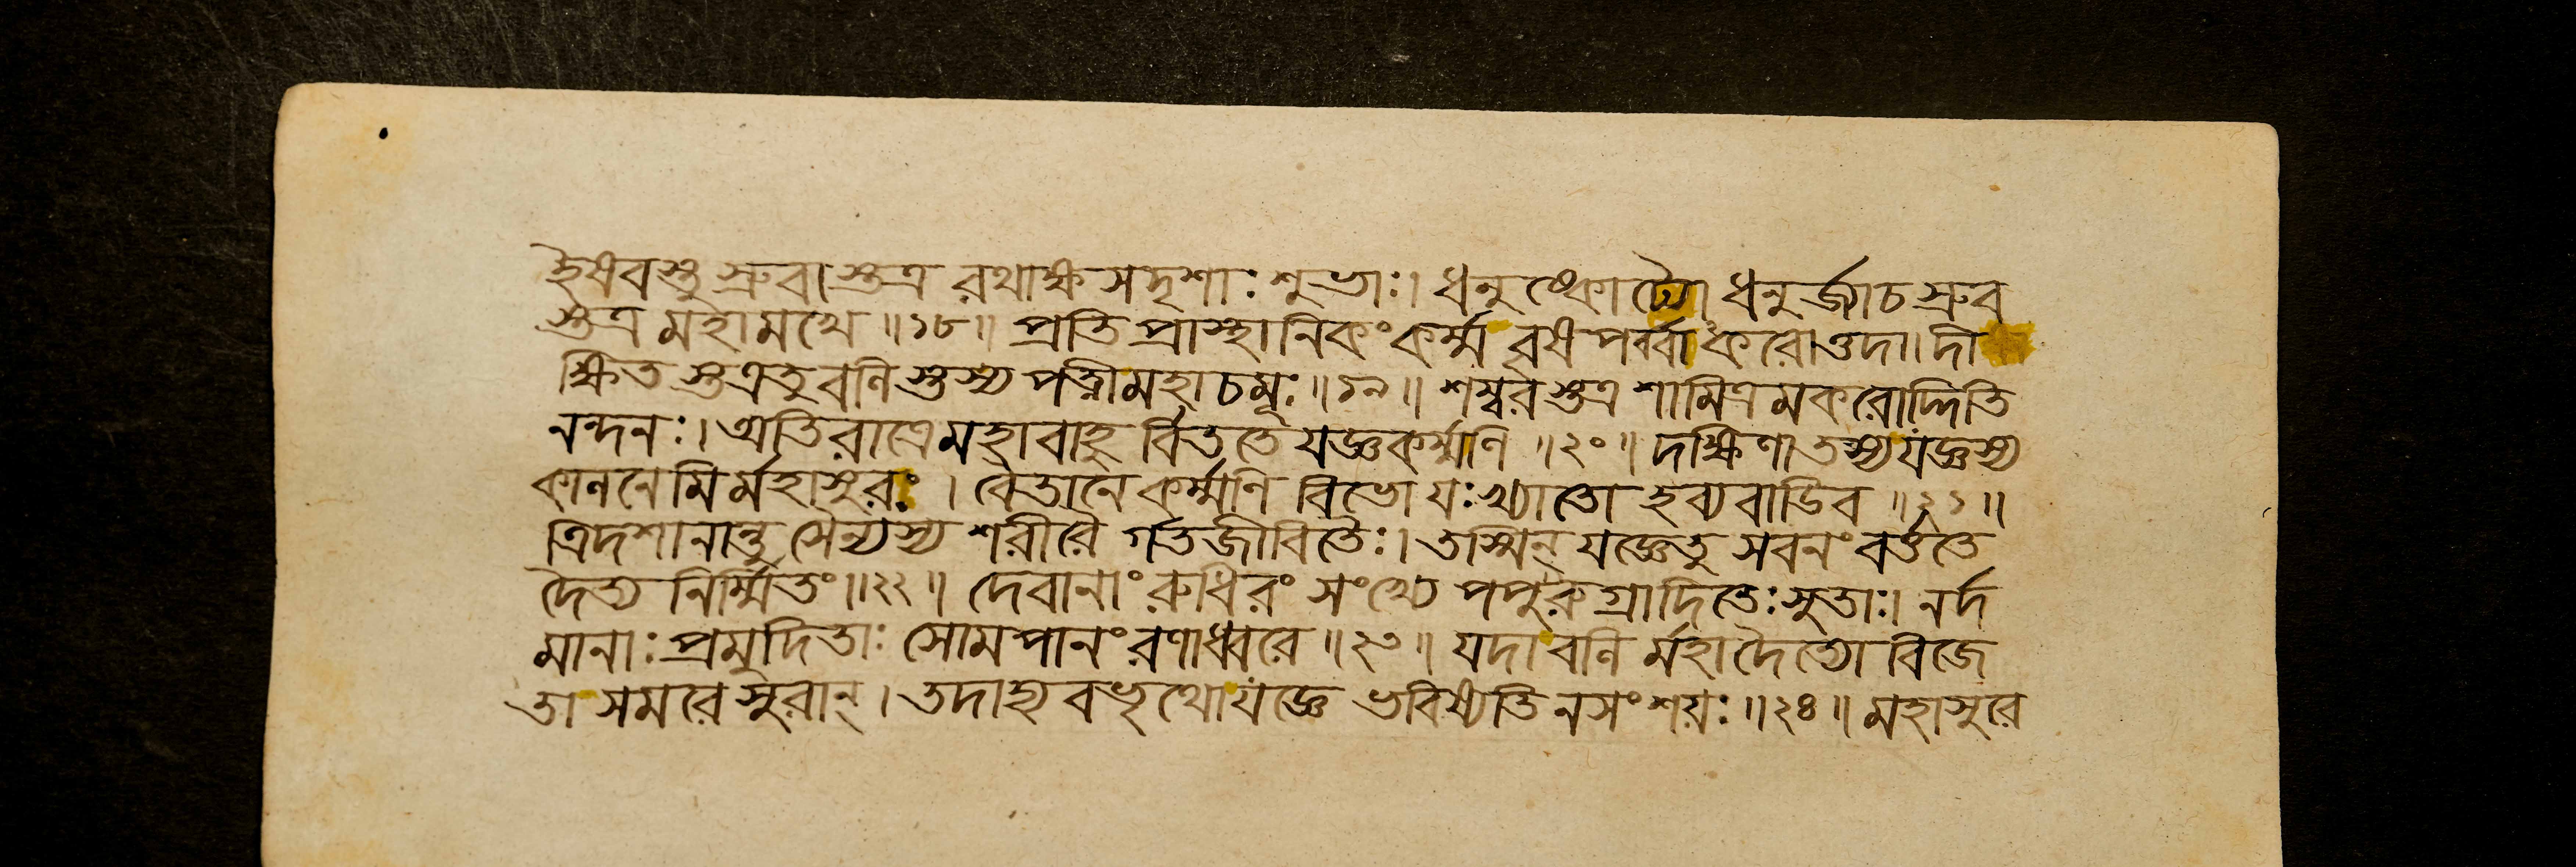 হৈষবস্তু স্রুবাস্তত্র রথাক্ষসদৃশাঃ শুভাঃ। ধনুষ্কোট্যো ধনুর্জ্জাচ স্রুব
স্তত্র মহামখে ॥১৮॥ প্রতি প্রাস্থানিকং কর্ম্ম বৃষপর্ব্বাকরোত্তদা।দী
ক্ষিত স্তত্রতু বলি স্তস্য পত্নীমহাচমূঃ ॥১৯॥ শম্বরস্তত্র শামিত্রমকরোদ্দিতি
নন্দনঃ। অতিরাত্রেমহাবাহু র্বিততে যজ্ঞকর্ম্মণি ॥২০॥ দক্ষিণা তস্যযজ্ঞস্য
কালনেমি র্মহাসুরঃ । বৈতানে কর্ম্মণি বিভো যঃখ্যাতো হব্যবাডিব ॥২১॥
ত্রিদশানান্তু সৈন্যস্য শরীরৈ র্গতজীবিতৈঃ। তস্মিন্ যজ্ঞেতু সবনং বর্ত্ততে
দৈত্য নির্ম্মিতং ॥২২॥ দেবানাং রুধিরং সংখ্যে পপুরুগ্রাদিতেঃসুতাঃ। নর্দ
মানাঃ প্রমুদিতাঃ সোমপানং রণাধ্বরে ॥২৩॥ যদা বলি র্মহাদৈত্যো বিজে
তা সমরে সুরান্। তদাহ্যবভৃথোযজ্ঞে ভবিষ্যতি নসংশয়ঃ ॥২৪॥ মহাসুরে